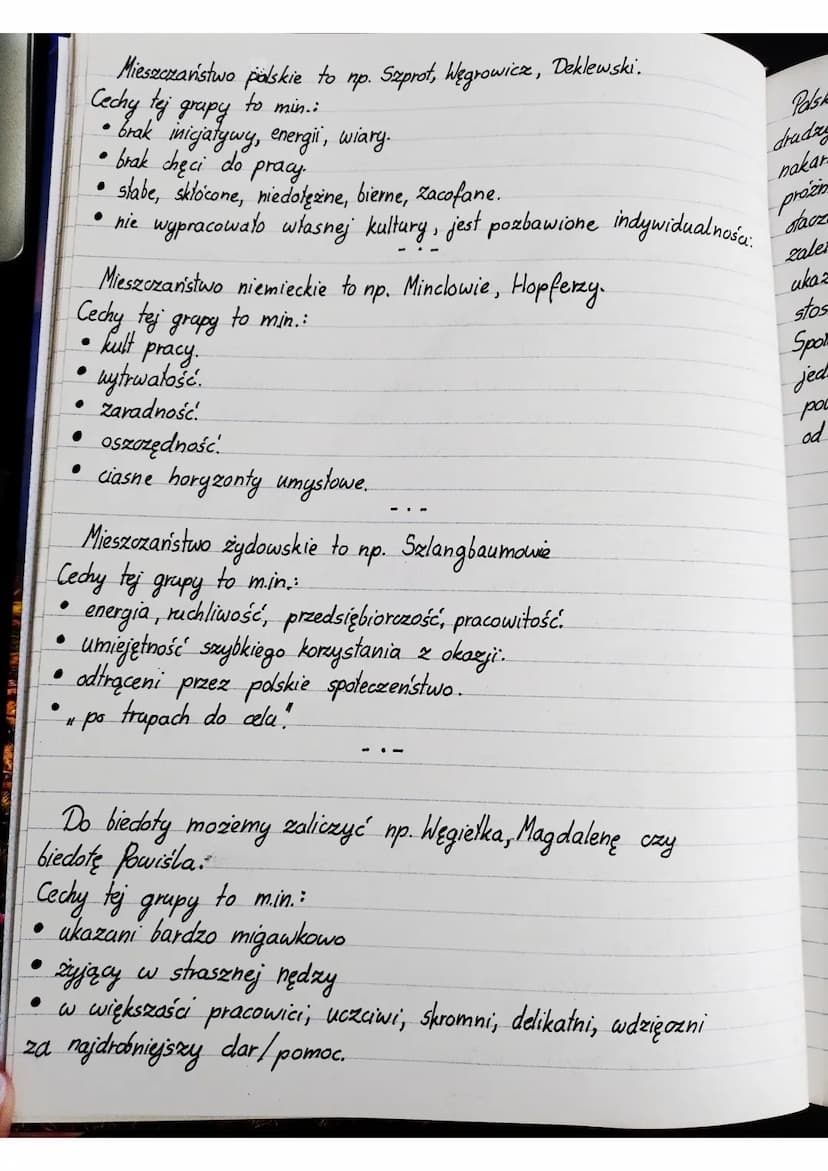 Mieszczaństwo polskie to np. Szprot, Węgrowicz, Deklewski.
Cechy tej grupy to min.:
• brak inicjatywy, energii, wiary.
• brak chęci do pracy.
• słabe, skłócone, niedołężne, bierne, zacofane.
• nie wypracowało własnej kultury, jest pozbawione indywidualności.
- · -
Mieszczaństwo niemieckie to np. Minclowie, Hopferzy.
Cechy tej grupy to min.:
• kult pracy.
• wytrwałość.
• zaradność.
• oszczędność.
• ciasne horyzonty umysłowe.
- · -
Mieszczaństwo żydowskie to np. Szlangbaumowie
Cechy tej grupy to m.in.:
• energia, ruchliwość, przedsiębiorczość, pracowitość.
• umiejętność szybkiego korzystania z okazji.
• odtrąceni przez polskie społeczeństwo.
• „po trupach do celu."
- · -
Do biedoty możemy zaliczyć np. Węgiełka, Magdalenę czy
biedotę Powiśla.
Cechy tej grupy to m.in.:
• ukazani bardzo migawkowo
• żyjący w strasznej nędzy
• w większości pracowici, uczciwi, skromni, delikatni, wdzięczni
za najdrobniejszy dar/pomoc.